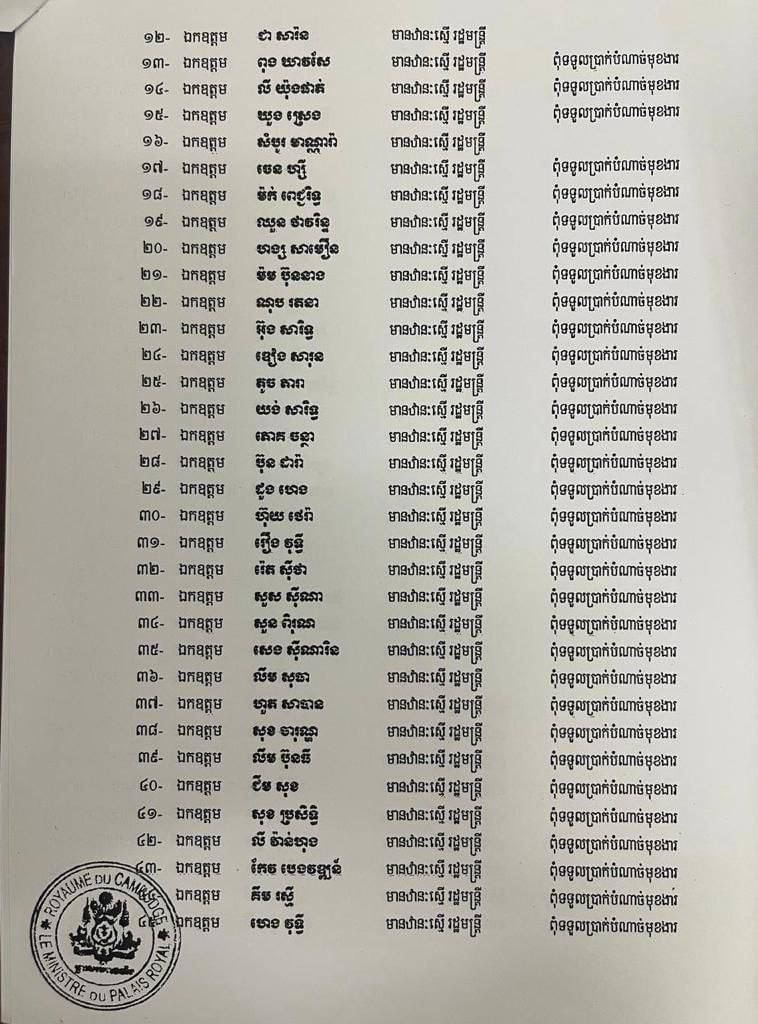 ១២- ឯកឧត្តម ជា សារ៉ន មានឋានៈស្មើ រដ្ឋមន្ត្រី
១៣- ឯកឧត្តម ពុង ឃាវសែ មានឋានៈស្មើ រដ្ឋមន្ត្រី ពុំទទួលប្រាក់បំណាច់មុខងារ
១៤- ឯកឧត្តម លី យ៉ុងផាត់ មានឋានៈស្មើ រដ្ឋមន្ត្រី ពុំទទួលប្រាក់បំណាច់មុខងារ
១៥- ឯកឧត្តម ឃួង ស្រេង មានឋានៈស្មើ រដ្ឋមន្ត្រី ពុំទទួលប្រាក់បំណាច់មុខងារ
១៦- ឯកឧត្តម សំបូរ មាណ្ណារ៉ា មានឋានៈស្មើ រដ្ឋមន្ត្រី
១៧- ឯកឧត្តម ចេន ហ្ស៊ី មានឋានៈស្មើ រដ្ឋមន្ត្រី ពុំទទួលប្រាក់បំណាច់មុខងារ
១៨- ឯកឧត្តម ម៉ក់ ពេជ្ររិទ្ធ មានឋានៈស្មើ រដ្ឋមន្ត្រី ពុំទទួលប្រាក់បំណាច់មុខងារ
១៩- ឯកឧត្តម ឈួន ថាវរិន្ទ មានឋានៈស្មើ រដ្ឋមន្ត្រី ពុំទទួលប្រាក់បំណាច់មុខងារ
២០- ឯកឧត្តម ហង្ស សាមឿន មានឋានៈស្មើ រដ្ឋមន្ត្រី ពុំទទួលប្រាក់បំណាច់មុខងារ
២១- ឯកឧត្តម ម៉ម ប៊ុននាង មានឋានៈស្មើ រដ្ឋមន្ត្រី ពុំទទួលប្រាក់បំណាច់មុខងារ
២២- ឯកឧត្តម ណុប រតនា មានឋានៈស្មើ រដ្ឋមន្ត្រី ពុំទទួលប្រាក់បំណាច់មុខងារ
២៣- ឯកឧត្តម អ៊ុង សារិទ្ធ មានឋានៈស្មើ រដ្ឋមន្ត្រី ពុំទទួលប្រាក់បំណាច់មុខងារ
២៤- ឯកឧត្តម ឌៀង សារុន មានឋានៈស្មើ រដ្ឋមន្ត្រី ពុំទទួលប្រាក់បំណាច់មុខងារ
២៥- ឯកឧត្តម តូច តារា មានឋានៈស្មើ រដ្ឋមន្ត្រី ពុំទទួលប្រាក់បំណាច់មុខងារ
២៦- ឯកឧត្តម យង់ សារិទ្ធ មានឋានៈស្មើ រដ្ឋមន្ត្រី ពុំទទួលប្រាក់បំណាច់មុខងារ
២៧- ឯកឧត្តម តោគ ចន្ថា មានឋានៈស្មើ រដ្ឋមន្ត្រី ពុំទទួលប្រាក់បំណាច់មុខងារ
២៨- ឯកឧត្តម ប៊ុន ដារ៉ា មានឋានៈស្មើ រដ្ឋមន្ត្រី ពុំទទួលប្រាក់បំណាច់មុខងារ
២៩- ឯកឧត្តម ដួង ហេង មានឋានៈស្មើ រដ្ឋមន្ត្រី ពុំទទួលប្រាក់បំណាច់មុខងារ
៣០- ឯកឧត្តម ហ៊ុយ ថេរ៉ា មានឋានៈស្មើ រដ្ឋមន្ត្រី ពុំទទួលប្រាក់បំណាច់មុខងារ
៣១- ឯកឧត្តម រឿង វុទ្ធី មានឋានៈស្មើ រដ្ឋមន្ត្រី ពុំទទួលប្រាក់បំណាច់មុខងារ
៣២- ឯកឧត្តម រ៉េត ស៊ីថា មានឋានៈស្មើ រដ្ឋមន្ត្រី ពុំទទួលប្រាក់បំណាច់មុខងារ
៣៣- ឯកឧត្តម សួស ស៊ីណា មានឋានៈស្មើ រដ្ឋមន្ត្រី ពុំទទួលប្រាក់បំណាច់មុខងារ
៣៤- ឯកឧត្តម សួន ពិរុណ មានឋានៈស្មើ រដ្ឋមន្ត្រី ពុំទទួលប្រាក់បំណាច់មុខងារ
៣៥- ឯកឧត្តម សេង ស៊ីណារិន មានឋានៈស្មើ រដ្ឋមន្ត្រី ពុំទទួលប្រាក់បំណាច់មុខងារ
៣៦- ឯកឧត្តម លឹម សុធា មានឋានៈស្មើ រដ្ឋមន្ត្រី ពុំទទួលប្រាក់បំណាច់មុខងារ
៣៧- ឯកឧត្តម ហួត សាបាន មានឋានៈស្មើ រដ្ឋមន្ត្រី ពុំទទួលប្រាក់បំណាច់មុខងារ
៣៨- ឯកឧត្តម សុខ ចារុណ្ហ មានឋានៈស្មើ រដ្ឋមន្ត្រី ពុំទទួលប្រាក់បំណាច់មុខងារ
៣៩- ឯកឧត្តម លឹម ប៊ុនធី មានឋានៈស្មើ រដ្ឋមន្ត្រី ពុំទទួលប្រាក់បំណាច់មុខងារ
៤០- ឯកឧត្តម ជឹម សុខ មានឋានៈស្មើ រដ្ឋមន្ត្រី ពុំទទួលប្រាក់បំណាច់មុខងារ
៤១- ឯកឧត្តម សុខ ប្រសិទ្ធិ មានឋានៈស្មើ រដ្ឋមន្ត្រី ពុំទទួលប្រាក់បំណាច់មុខងារ
៤២- ឯកឧត្តម លី វ៉ាន់ហុង មានឋានៈស្មើ រដ្ឋមន្ត្រី ពុំទទួលប្រាក់បំណាច់មុខងារ
៤៣- ឯកឧត្តម កែវ បេងវឌ្ឍន៍ មានឋានៈស្មើ រដ្ឋមន្ត្រី ពុំទទួលប្រាក់បំណាច់មុខងារ
ឯកឧត្តម គីម រស្មី មានឋានៈស្មើ រដ្ឋមន្ត្រី ពុំទទួលប្រាក់បំណាច់មុខងារ
៤៥- ឯកឧត្តម ហេង វុទ្ធី មានឋានៈស្មើ រដ្ឋមន្ត្រី ពុំទទួលប្រាក់បំណាច់មុខងារ
ROYAUME DU CAMBODGE
LE MINISTRE DU PALAIS ROYAL